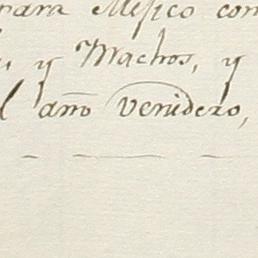 para Mejico con
y Machos, y
l año venidero,